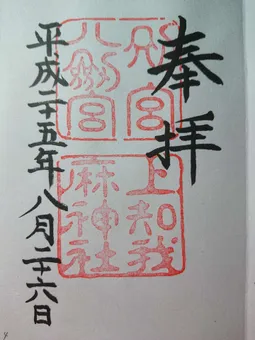 奉拝
別宮
八劔宮
上知我
麻神社
平成二十五年八月二十六日